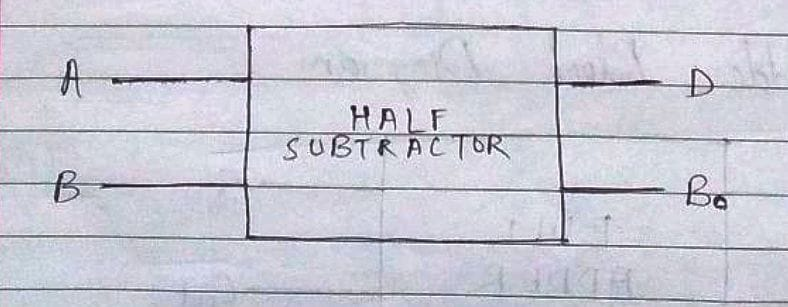 A
D
HALF
SUBTRACTOR
B
Bo